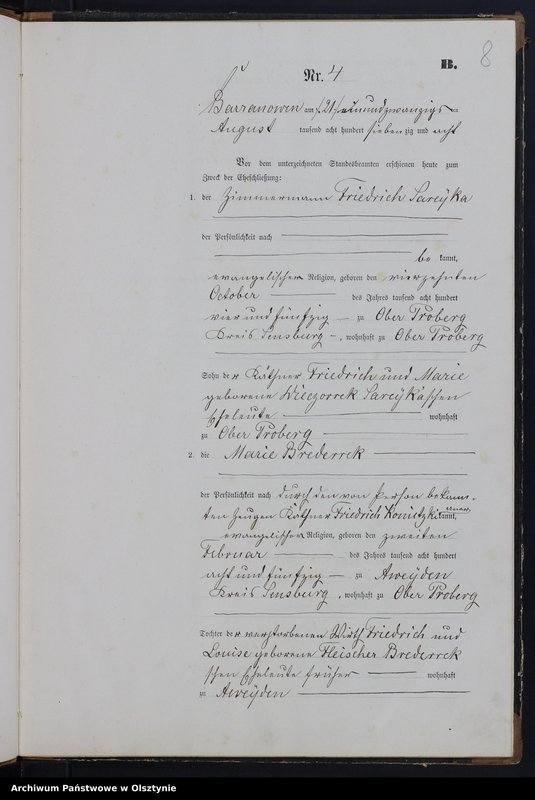 B.
8
Nr. 4
Barranowen am /21/ einundzwanzigs ten
August tausend acht hundert sieben zig und acht
Vor dem unterzeichneten Standesbeamten erschienen heute zum
Zweck der Eheschließung:
1. der Zimmermann Friedrich Sareyka
der Persönlichkeit nach
be kannt,
evangelischer Religion, geboren den vierzehnten
October des Jahres tausend acht hundert
vier und fünfzig zu Ober Proberg
Kreis Sensburg, wohnhaft zu Ober Proberg
Sohn der Käthner Friedrich und Marie
geborene Wieczorrek Sareyka'schen
Eheleute wohnhaft
zu Ober Proberg
2. die Marie Brederrek
der Persönlichkeit nach durch den von Person bekann-
ten Zeugen Käthner Friedrich Konietzki kannt,
evangelischer Religion, geboren den zweiten
Februar des Jahres tausend acht hundert
acht und fünfzig zu Aweyden
Kreis Sensburg, wohnhaft zu Ober Proberg
Tochter der verstorbenen Wirth Friedrich und
Louise geborene Fleischer Brederrek
schen Eheleute früher wohnhaft
zu Aweyden
Archiwum Państwowe w Olsztynie